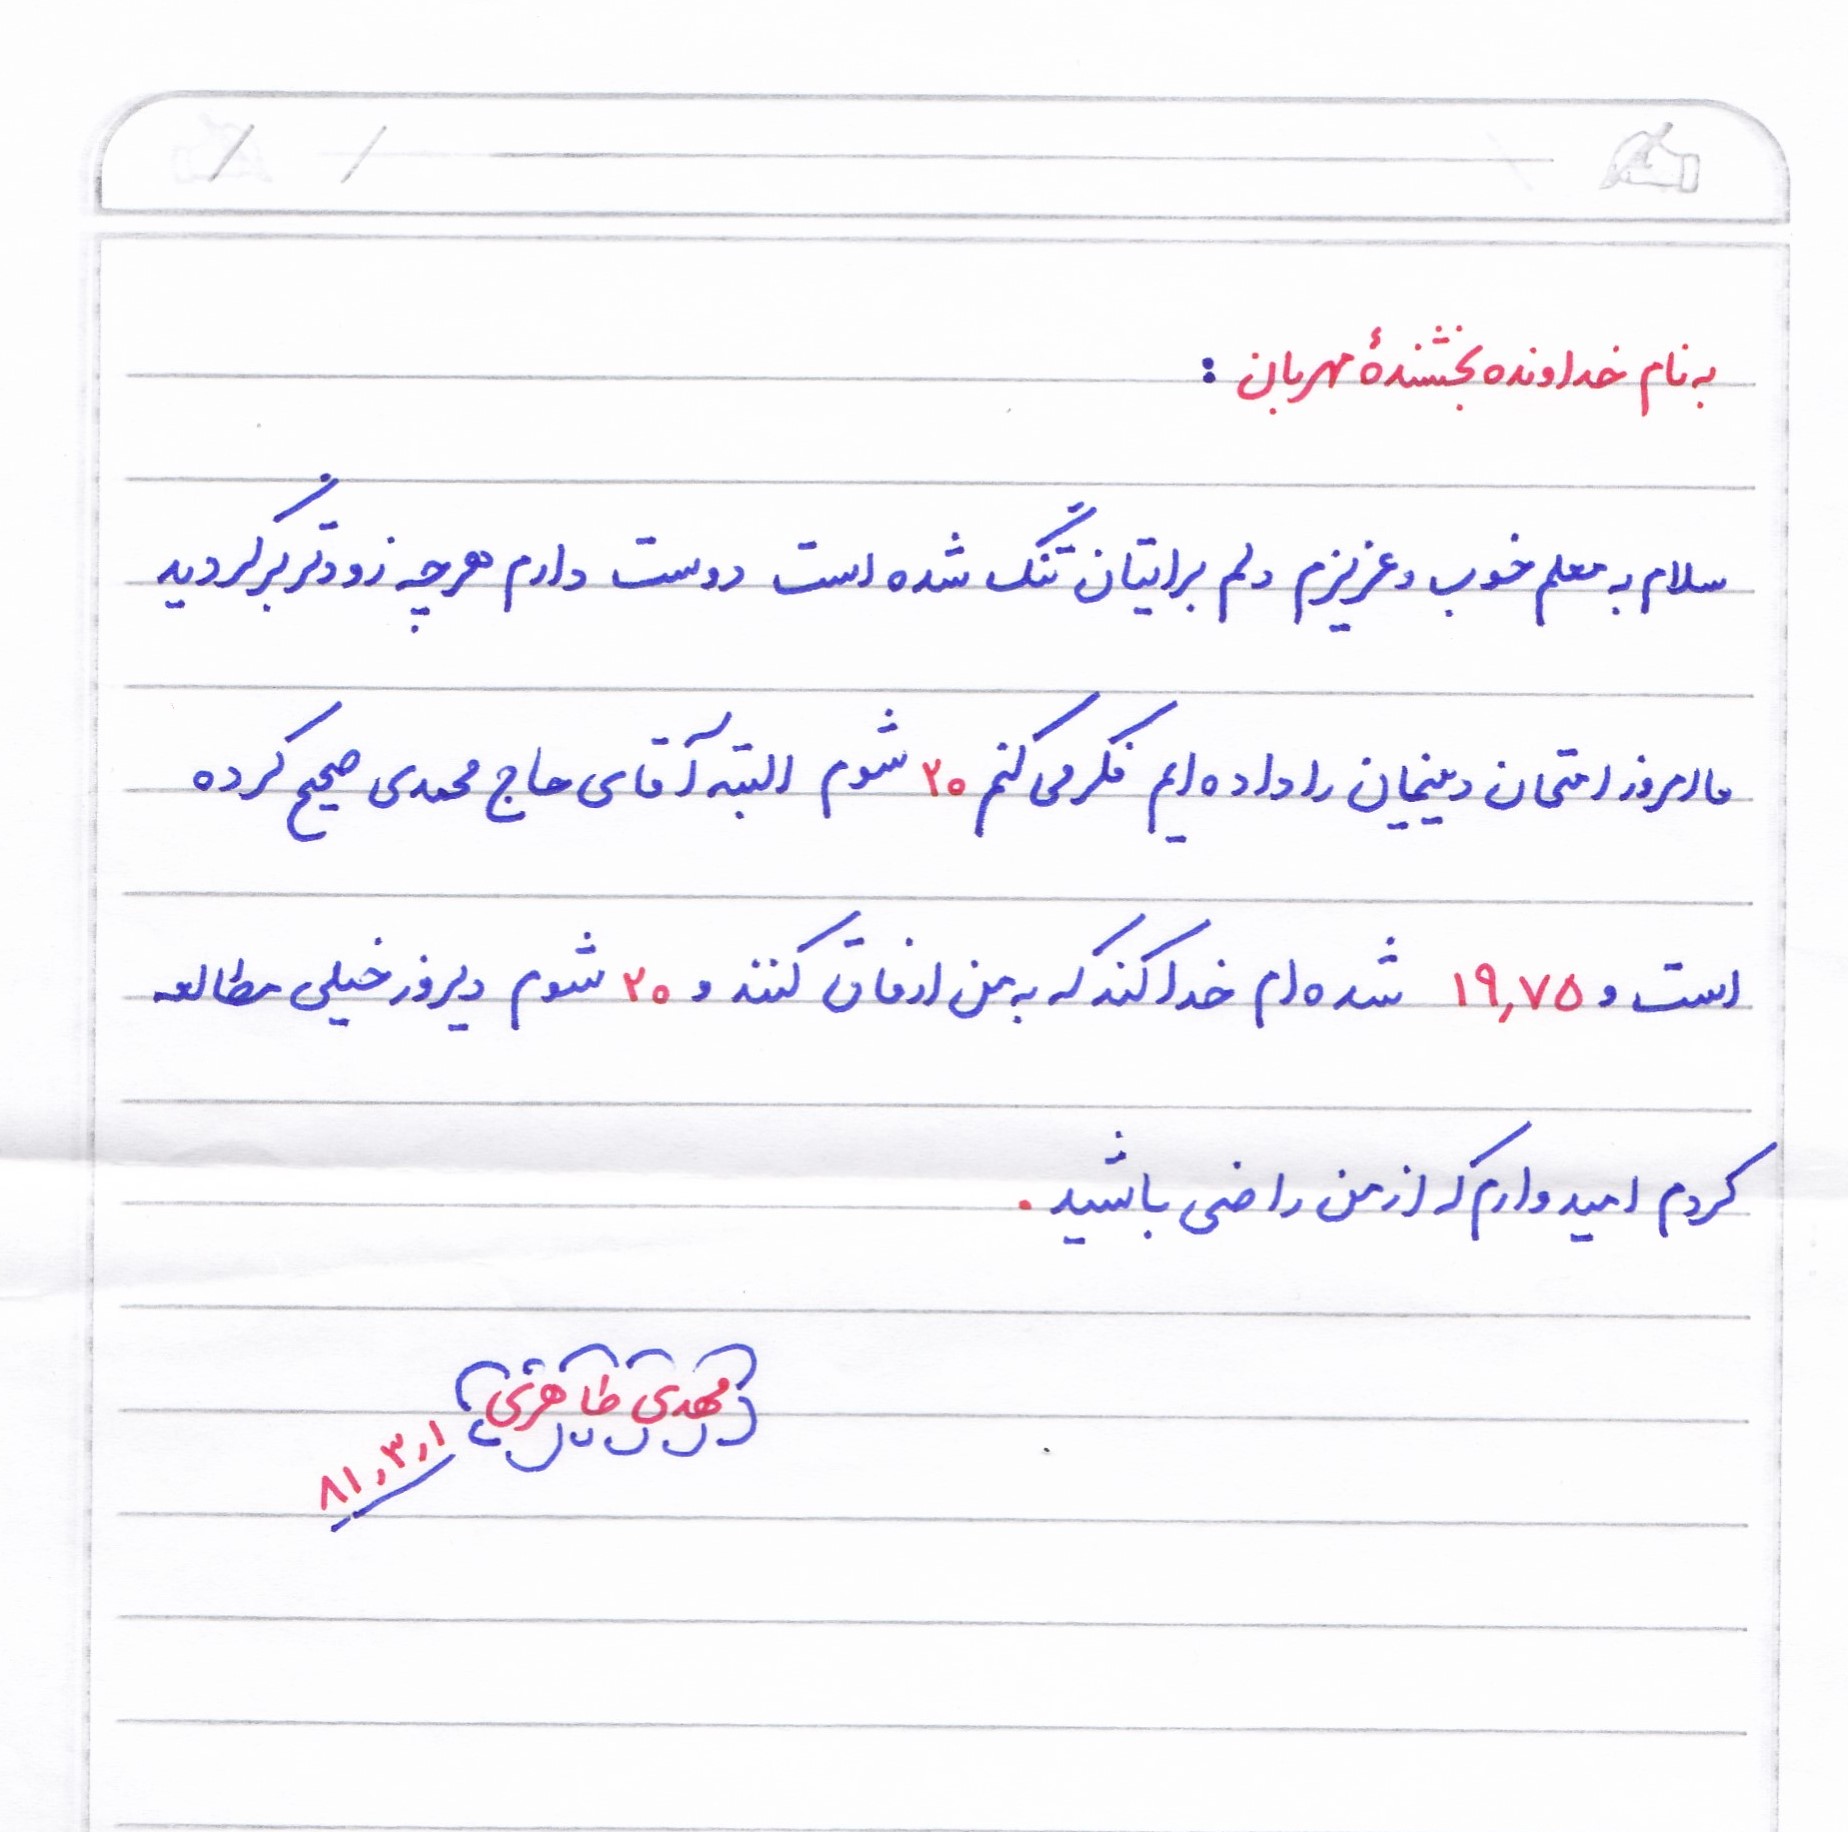 به نام خداونده بخشندهٔ مهربان :
سلام به معلم خوب و عزیزم دلم برایتان تنگ شده است دوست دارم هرچه زودتر برگردید
ما امروز امتحان دینیمان را داده ایم فکر می کنم ۲۰ شوم البته آقای حاج محمدی صحیح کرده
است و ۱۹,۷۵ شده ام خدا کند که به من ارفاق کنند و ۲۰ شوم دیروز خیلی مطالعه
کردم امیدوارم که از من راضی باشید .
مهدی طاهری
۸۱,۳,۱